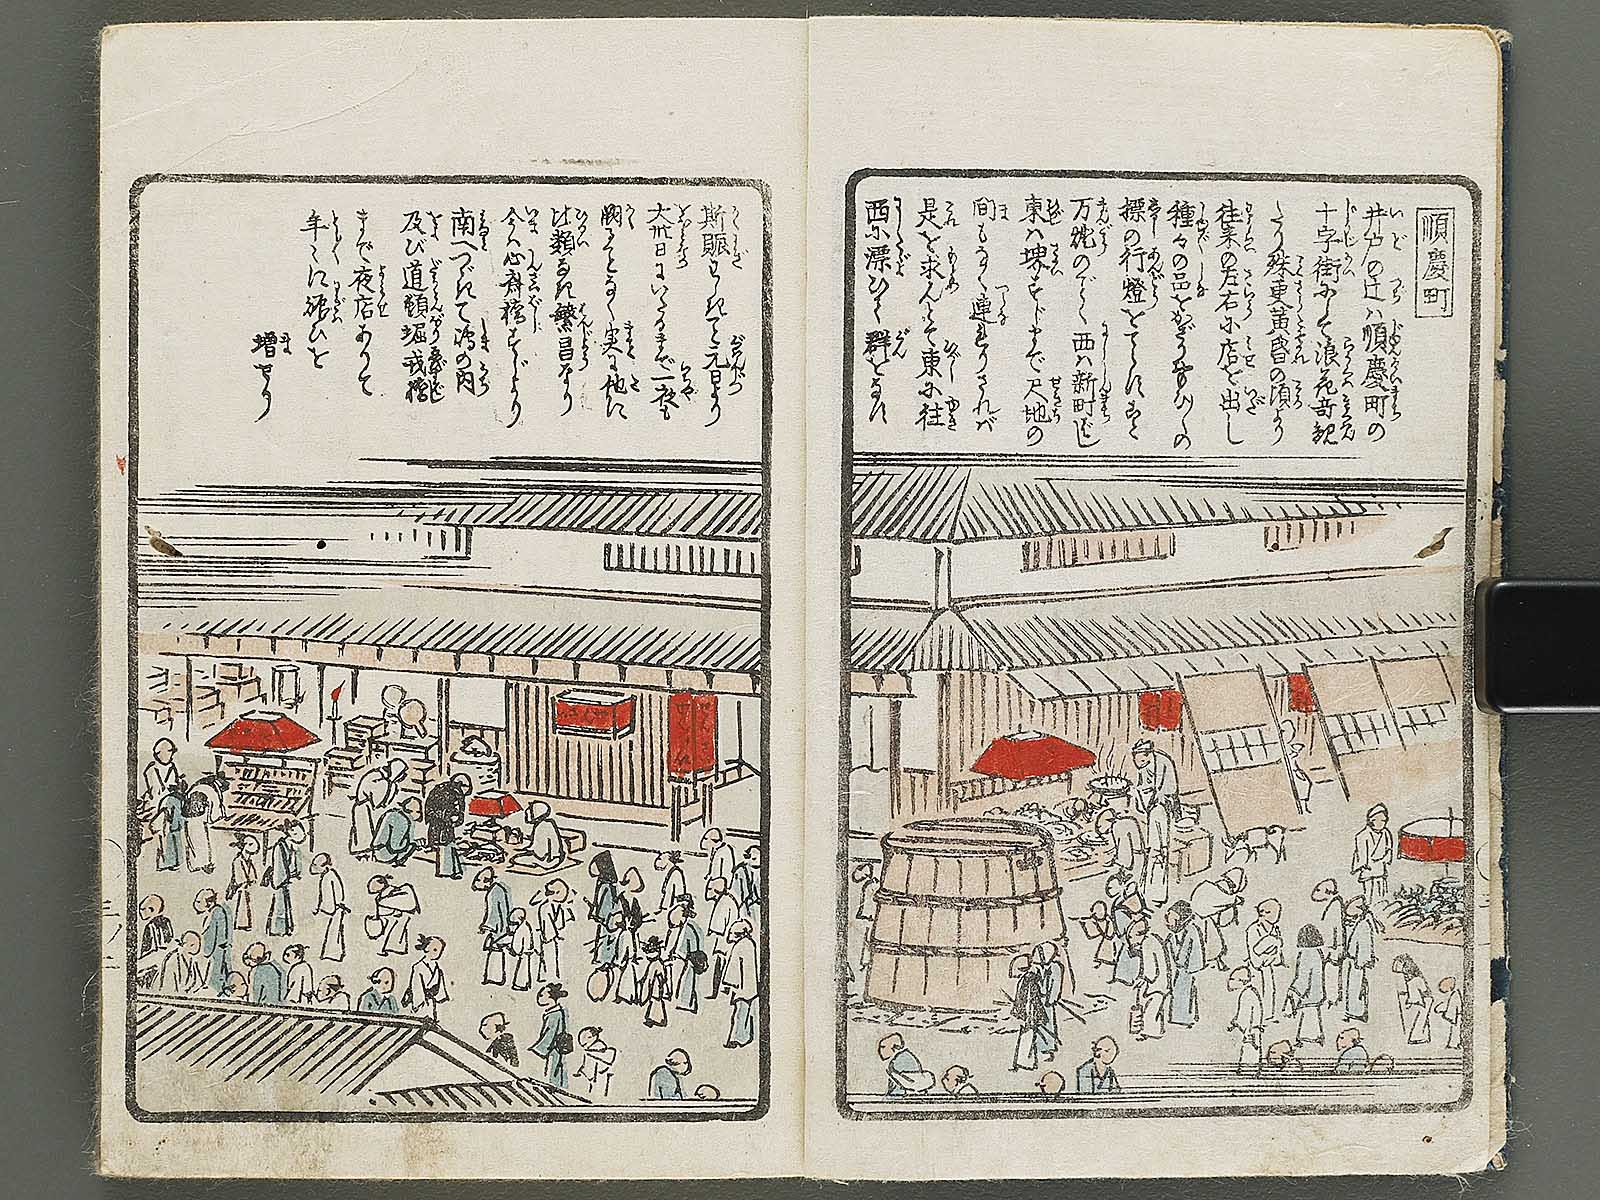 順慶町
井戸の辻ハ順慶町の
十字街にして浪花奇観
たり殊更黄昏の頃より
往来の左右に店を出し
種々の品をかざりおの〳〵の
標の行燈をてらすこと
万燈のごとく西ハ新町ばし
東ハ堺すじまで尺地の
間もなく連りされバ
是を求んとて東に往
西に漂ひて群をなす
斯賑わしきこと元日より
大卅日にいたるまで一夜も
闕ることなく実に他に
比類なき繁昌なり
今ハ心斎橋すじより
南へつゞきて嶋の内
及び道頓堀戎橋
まで夜店ありて
年々に賑ひを
増せり